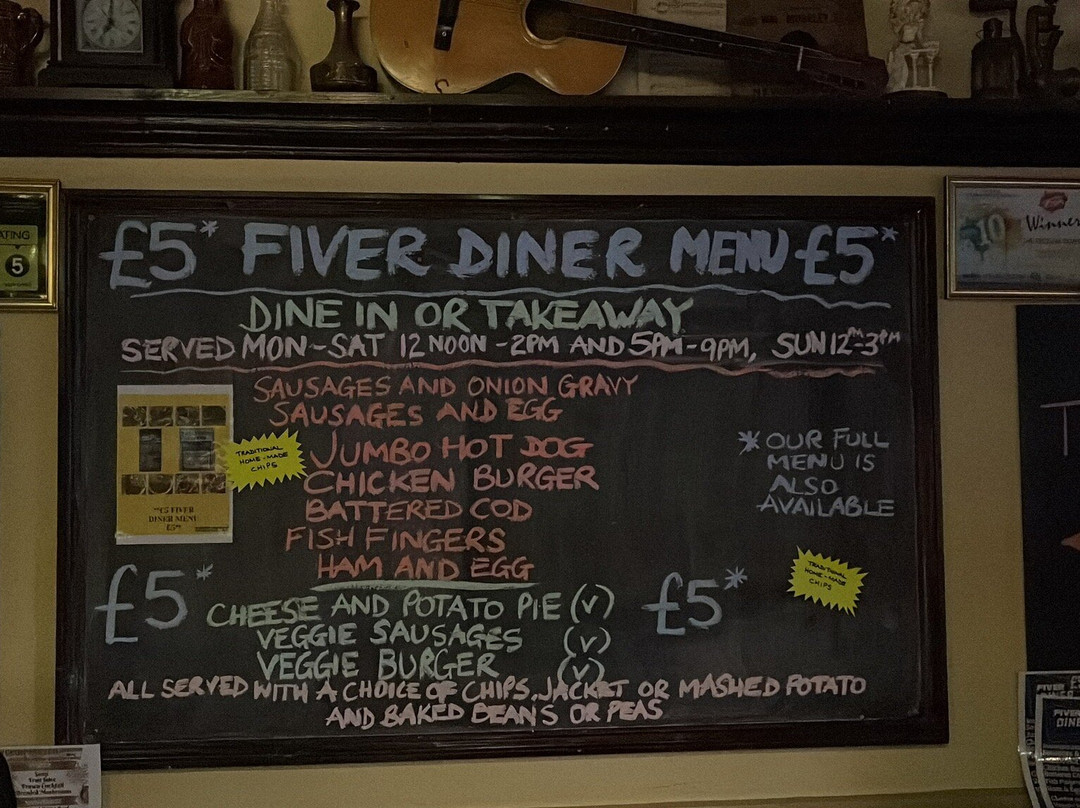 £5* FIVER DINER MENU £5*
DINE IN OR TAKEAWAY
SERVED MON-SAT 12 NOON - 2PM AND 5PM-9PM, SUN 12PM-3PM
SAUSAGES AND ONION GRAVY
SAUSAGES AND EGG
JUMBO HOT DOG
CHICKEN BURGER
BATTERED COD
FISH FINGERS
HAM AND EGG
TRADITIONAL
HOME-MADE
CHIPS
£5 FIVER
DINER MENU
* OUR FULL
MENU IS
ALSO
AVAILABLE
TRADITIONAL
HOME-MADE
CHIPS
£5*
£5*
CHEESE AND POTATO PIE (V)
VEGGIE SAUSAGES (V)
VEGGIE BURGER (V)
ALL SERVED WITH A CHOICE OF CHIPS, JACKET OR MASHED POTATO
AND BAKED BEANS OR PEAS
ATING
5
10
Winner
FIVER
FIVER
DINE
Soup
Prawn Cocktail
Breaded Mushrooms